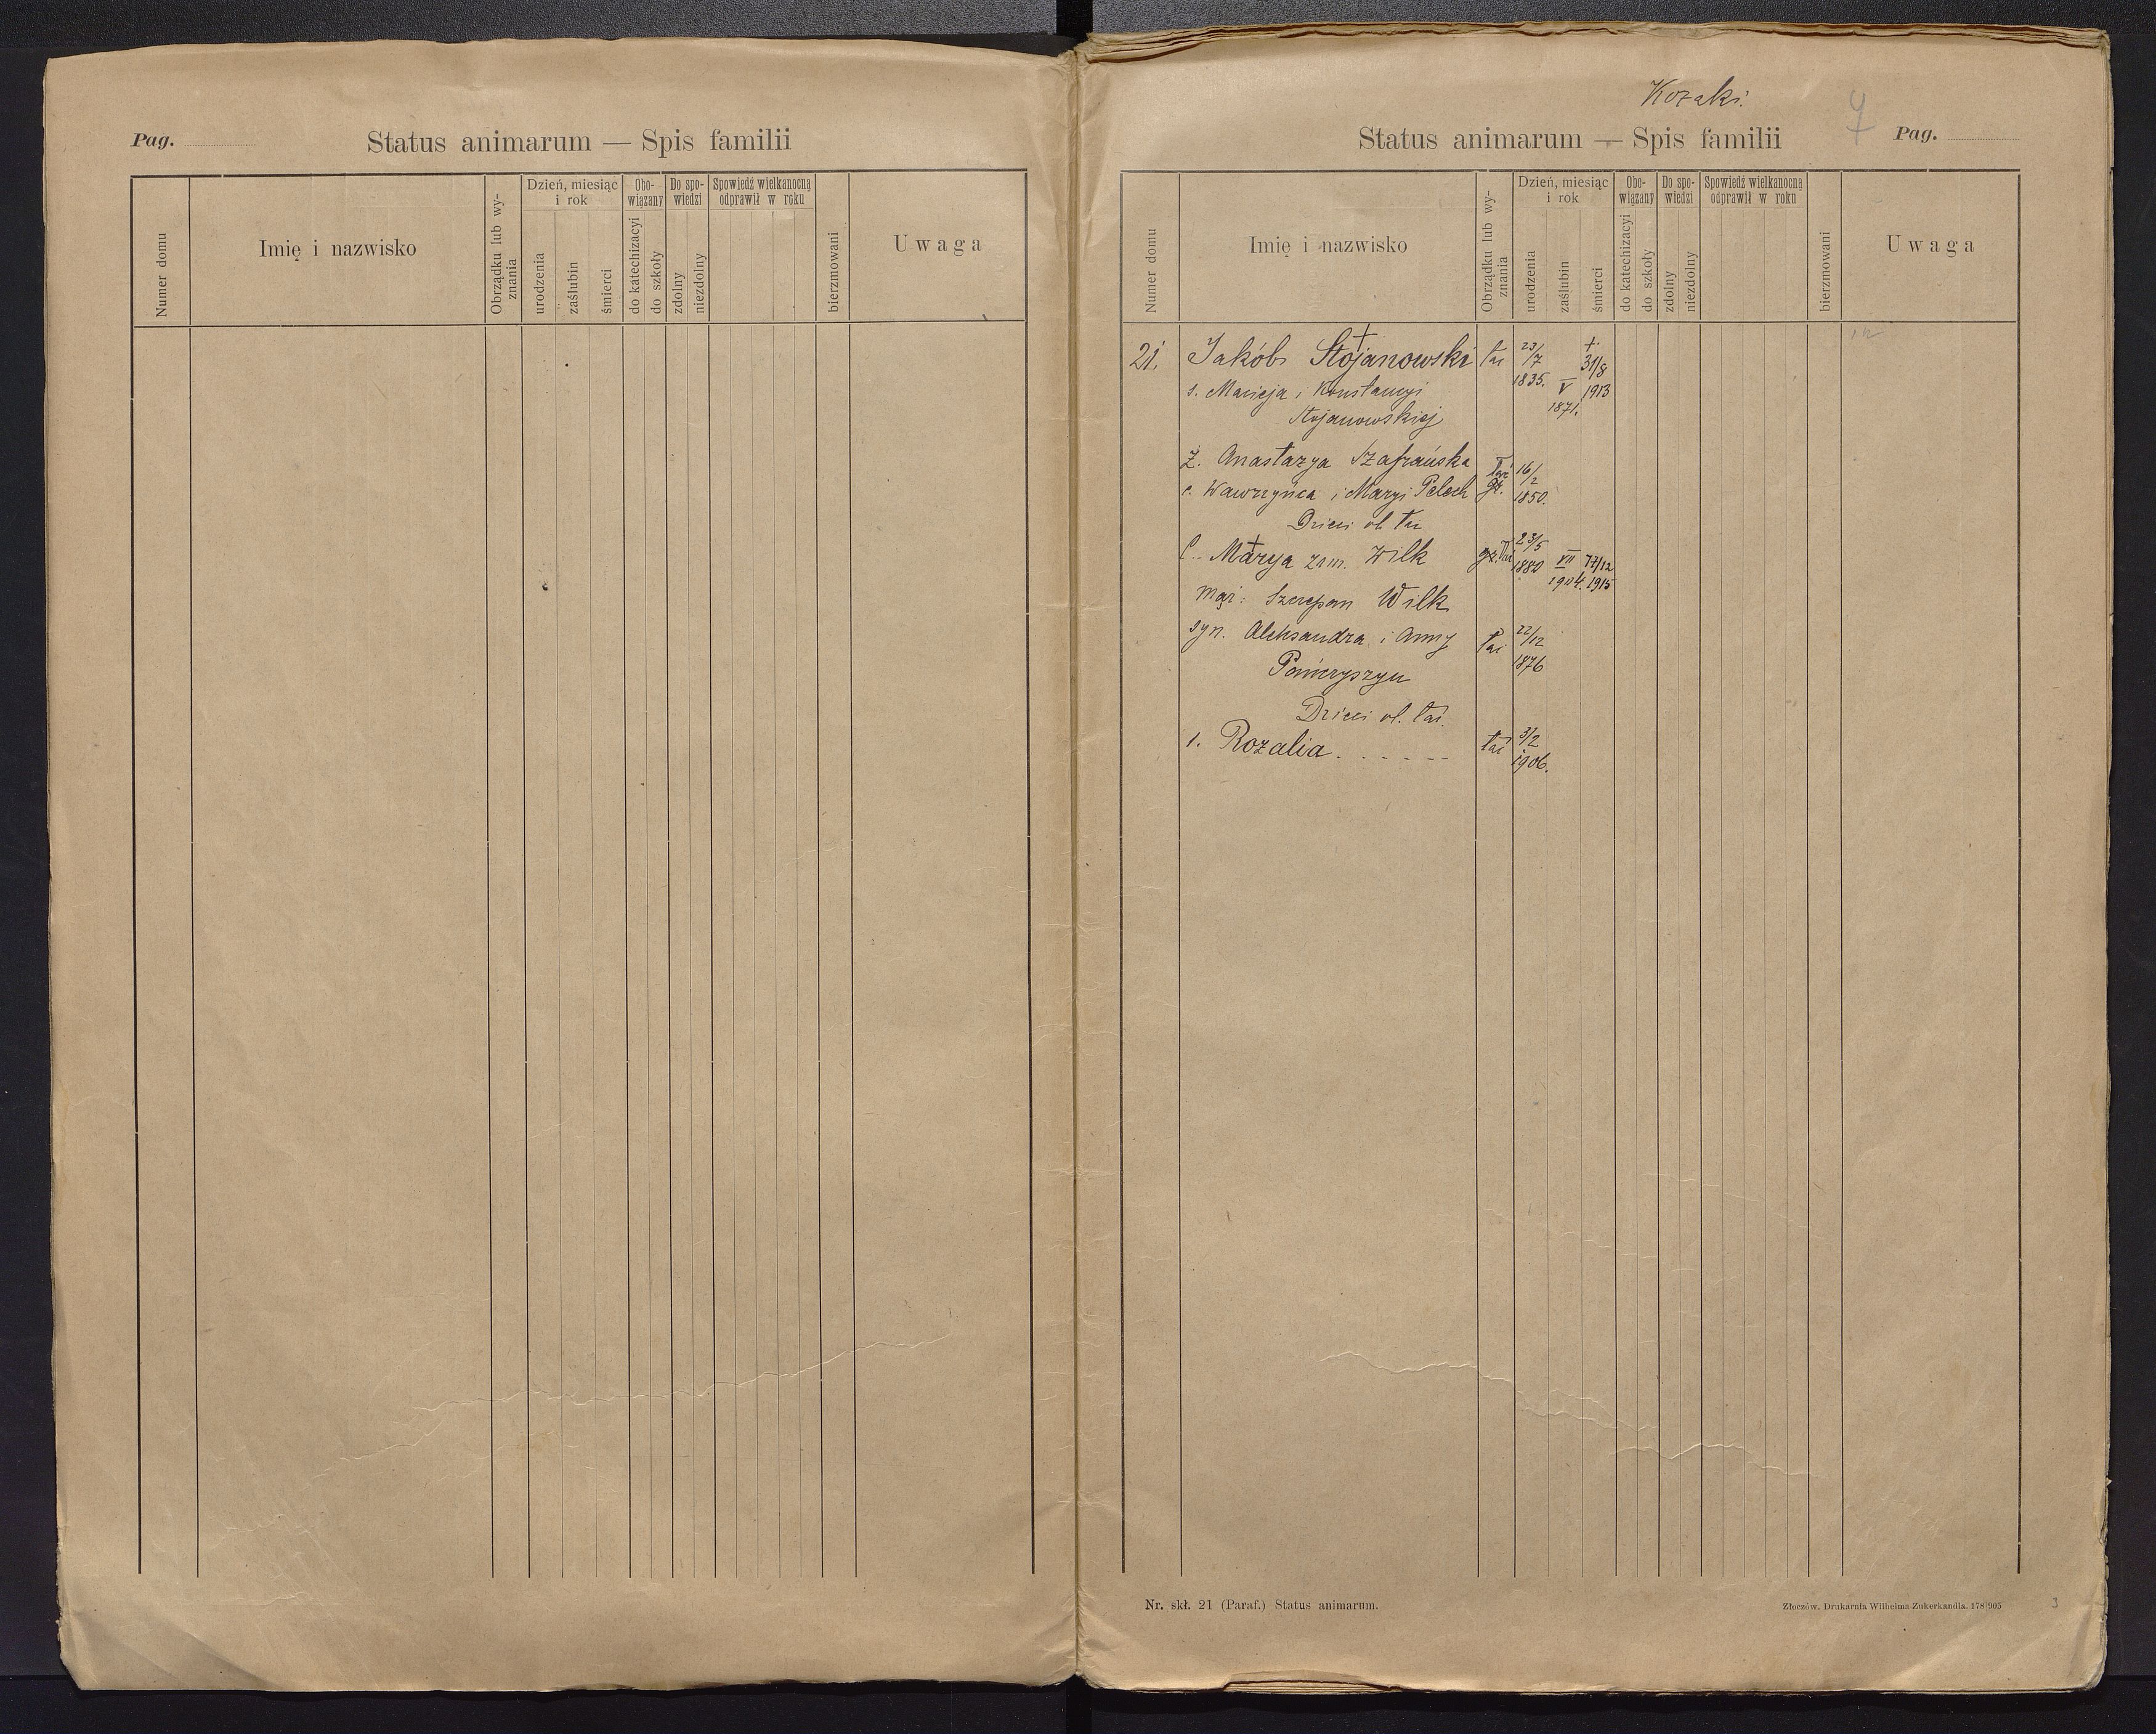 Pag.
Status animarum — Spis familii
Numer domu
Imię i nazwisko
Obrządku lub wy-
znania
Dzień, miesiąc
i rok
urodzenia
zaślubin
śmierci
Obo-
wiązany
do katechizacyi
do szkoły
Do spo-
wiedzi
zdolny
niezdolny
Spowiedź wielkanocną
odprawił w roku
bierzmowani
Uwaga
Kozaki.
7
Status animarum — Spis familii
Pag.
Numer domu
Imię i nazwisko
Obrządku lub wy-
znania
Dzień, miesiąc
i rok
urodzenia
zaślubin
śmierci
Obo-
wiązany
do katechizacyi
do szkoły
Do spo-
wiedzi
zdolny
niezdolny
Spowiedź wielkanocną
odprawił w roku
bierzmowani
Uwaga
21. Jakób Stojanowski łać 23/7 1835. V 1871. + 31/8 1913
s. Macieja i Konstancyi
Stojanowskiej
Ż. Anastazya Szafrańska gr. 16/2 1850.
c. Wawrzyńca i Maryi Pelech
Dzieci ob. łać
C. Marya zam. Wilk gr. łać 23/5 1880 VII 1904. 17/12 1915
mąż: Szczepan Wilk
syn. Aleksandra i Anny łać 22/12 1876
Dzieci ob. łać.
1. Rozalia . . . . . . łać 3/2 1906.
Nr. skł. 21 (Paraf.) Status animarum.
Złoczów. Drukarnia Wilhelma Zukerkandla. 178|905
3